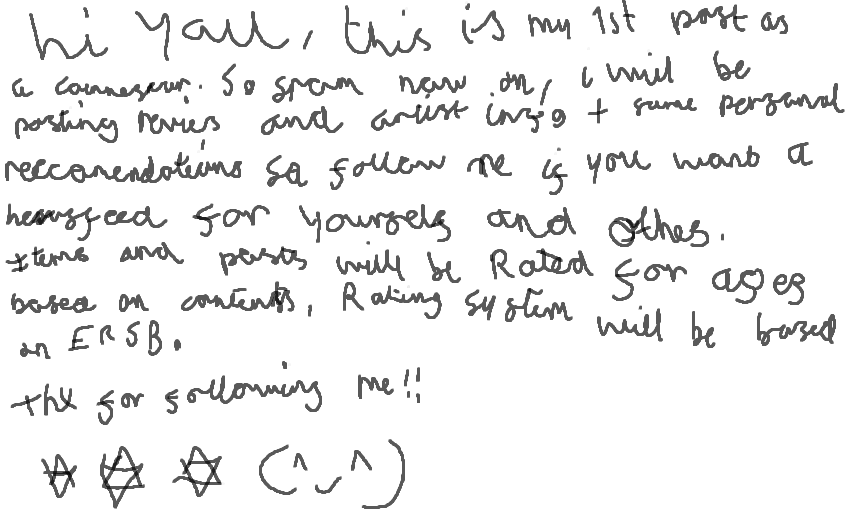 hi yall, this is my 1st post as
a conneseur. So sram now on, i will be
posting revies and artist info + some personal
reccomendations so follow me if you want a
newsfeed for yourself and othes.
Items and posts will be Rated for ages
based on contents, Rating system will be based
on ERSB.
thx for following me!!
(^‿^)